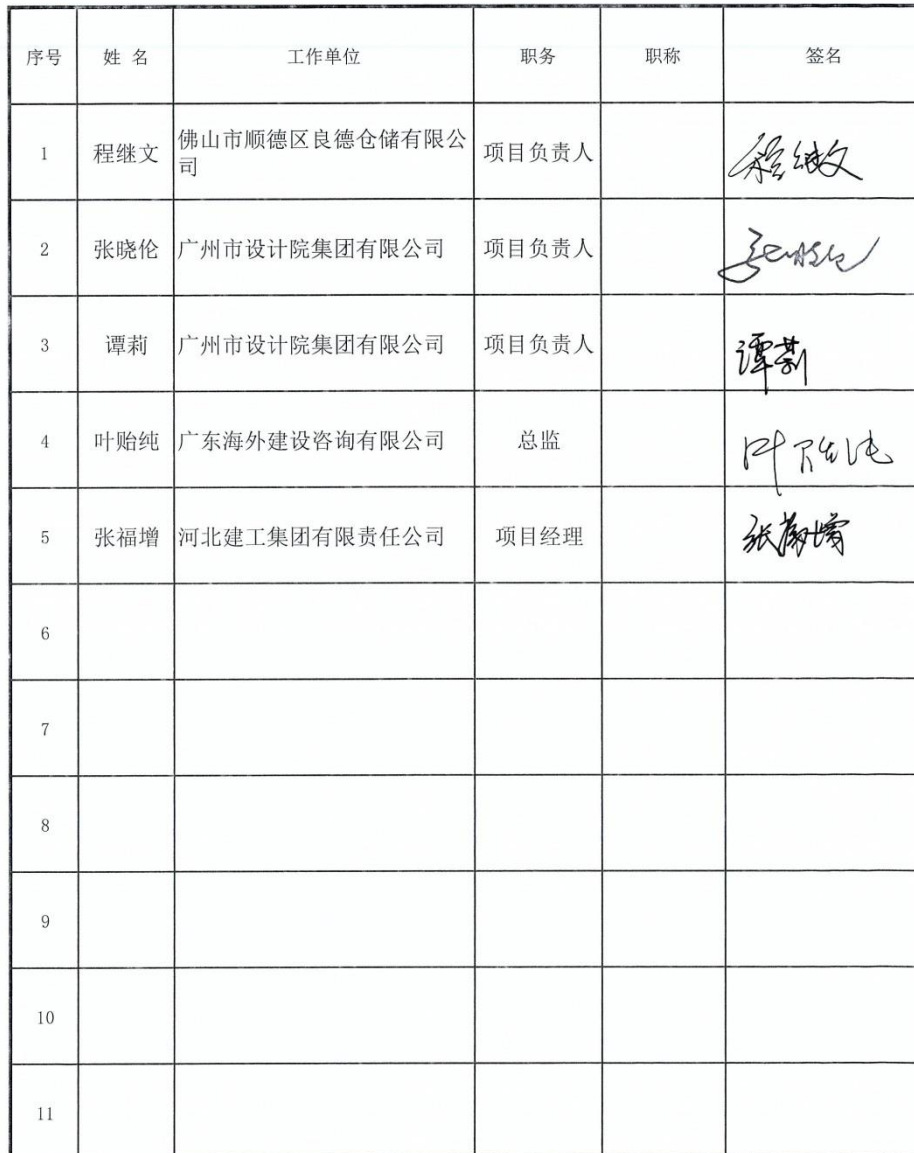 序号 姓 名 工作单位 职务 职称 签名
1 程继文 佛山市顺德区良德仓储有限公 项目负责人 程继文
司
2 张晓伦 广州市设计院集团有限公司 项目负责人 张晓伦
3 谭莉 广州市设计院集团有限公司 项目负责人 谭莉
4 叶贻纯 广东海外建设咨询有限公司 总监 叶贻纯
5 张福增 河北建工集团有限责任公司 项目经理 张福增
6
7
8
9
10
11